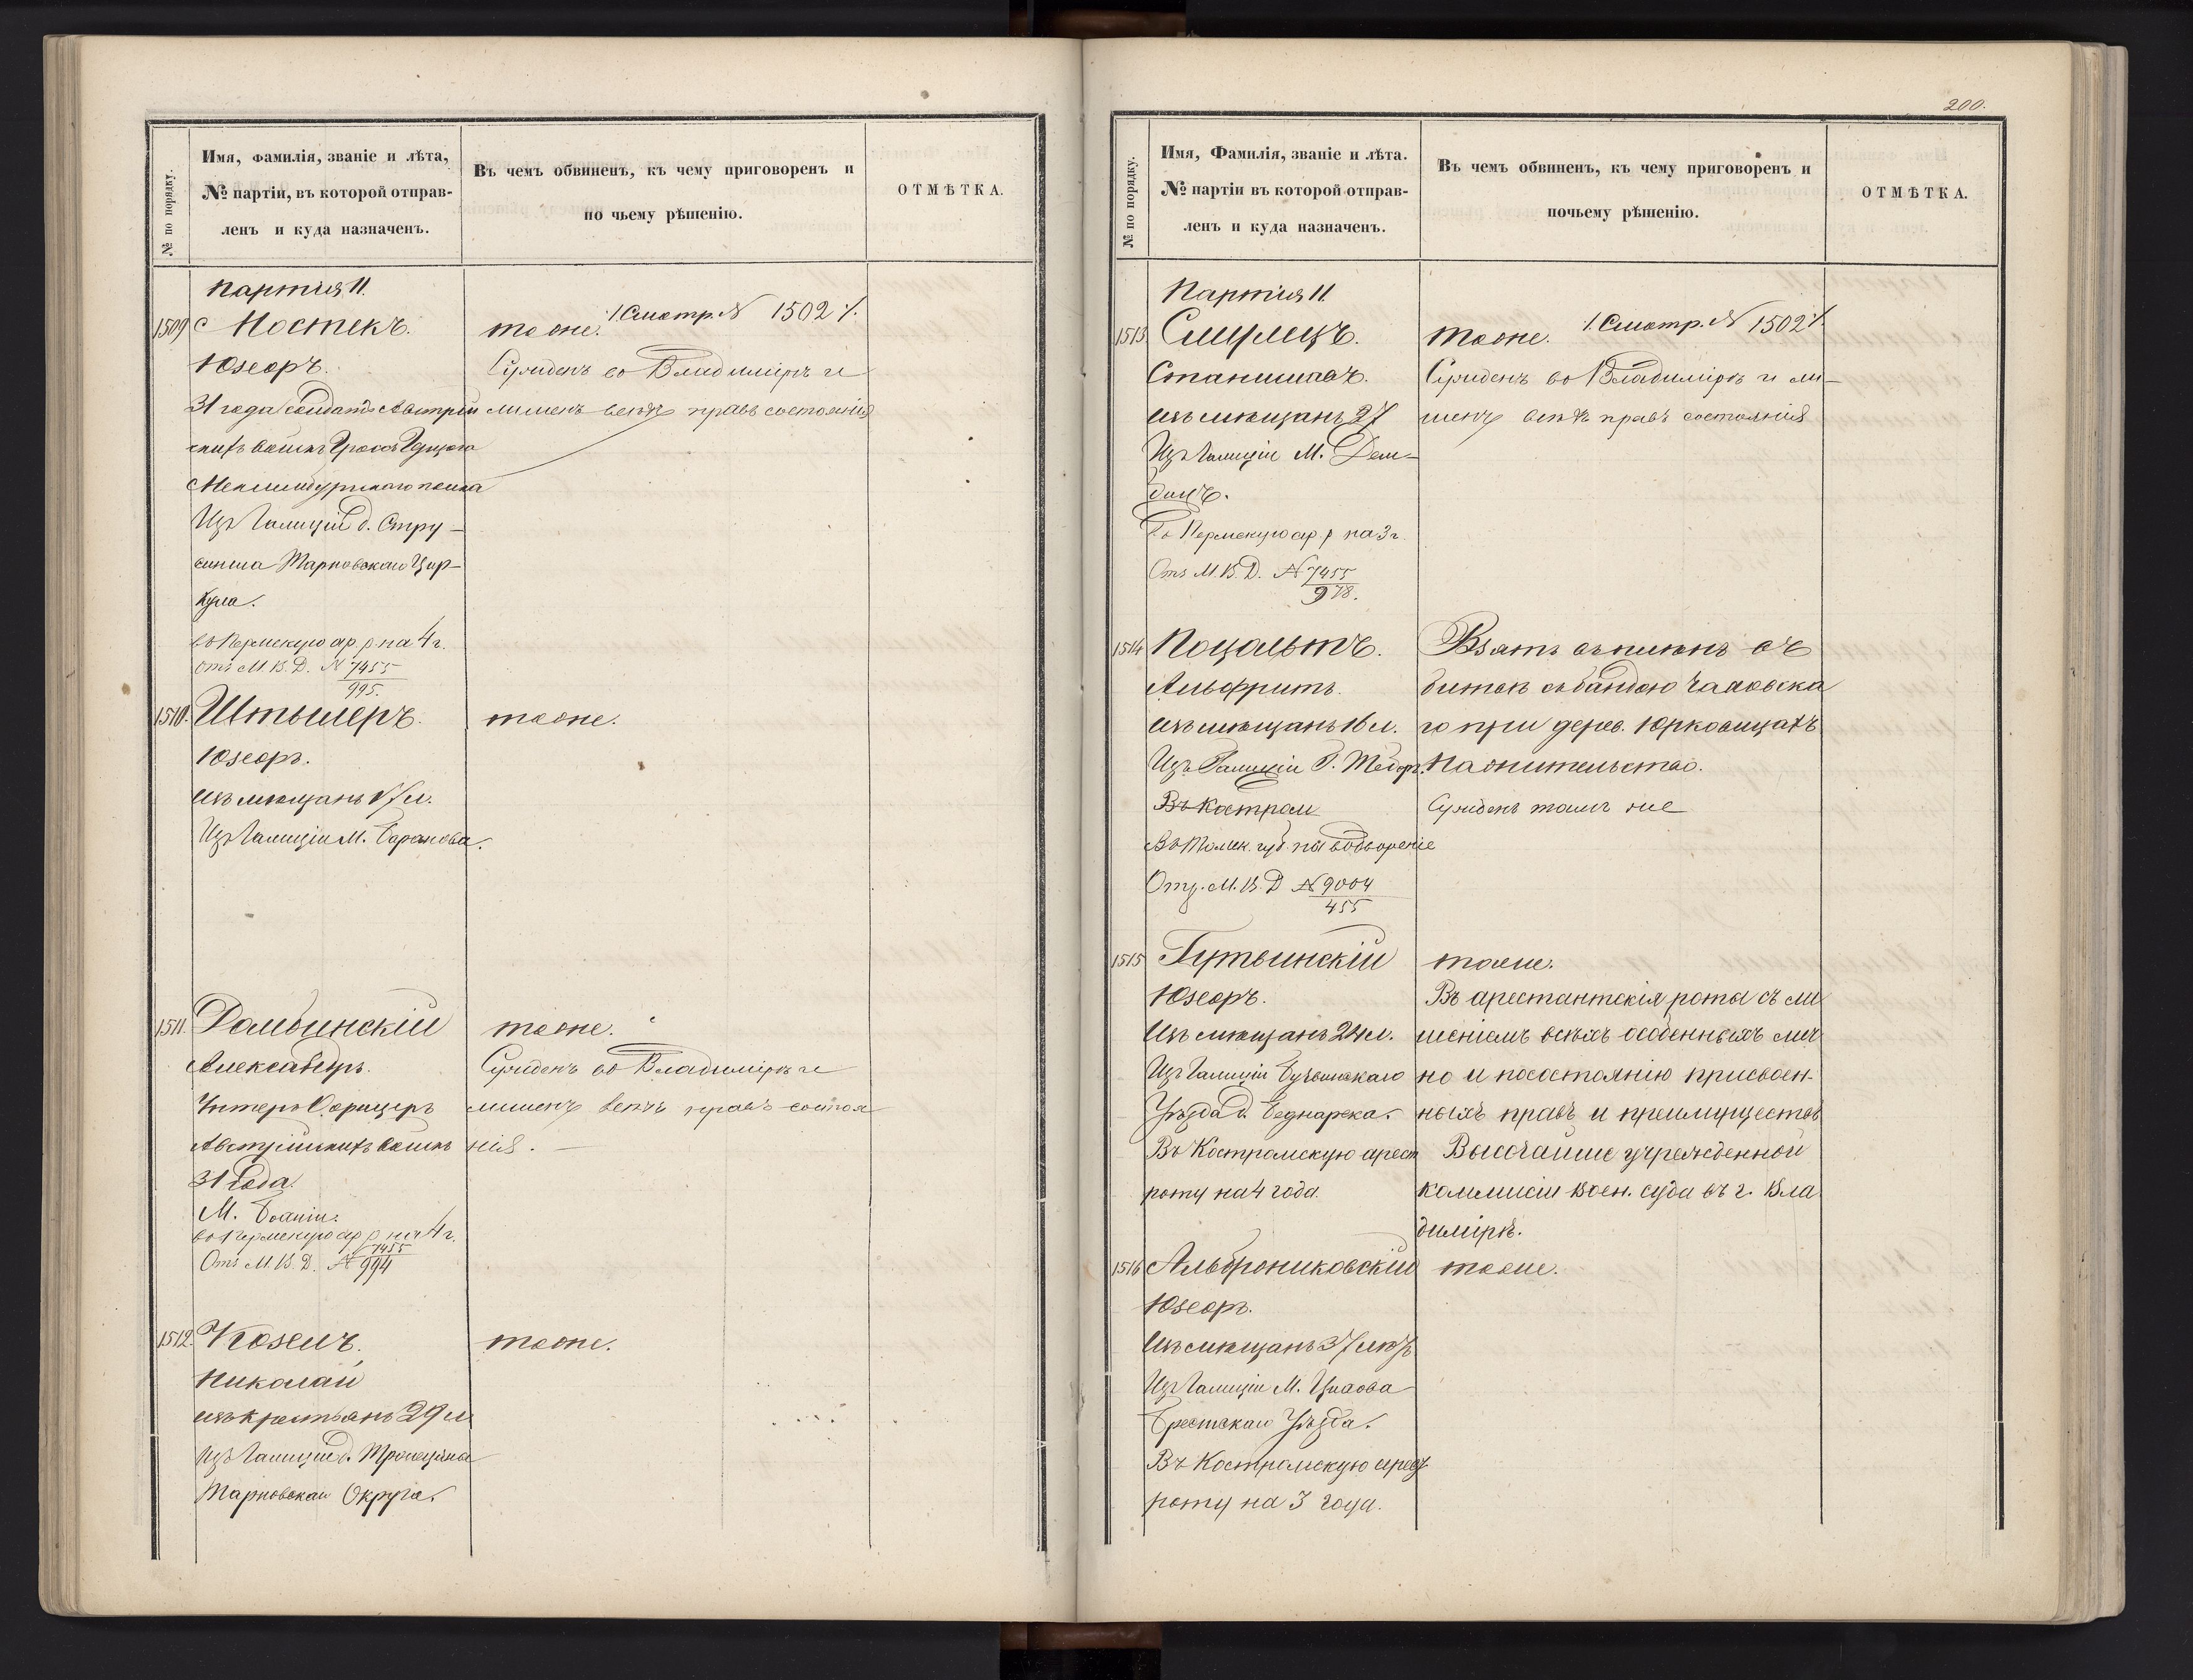 № по порядку.
Имя, Фамилія, званіе и лѣта,
№ партіи, въ которой отправ-
ленъ и куда назначенъ.
Въ чемъ обвиненъ, къ чему приговоренъ и
по чьему рѣшенію.
ОТМѢТКА.
Партия 11.
1509
Мостекъ.
тоже. /.Смотр. № 1502./.
Юзефъ.
Сужденъ во Владимірѣ и
31 года солдатъ Австрій
лишенъ всѣхъ правъ состоянія
скихъ войскъ
полка
Изъ Галиціи д. Стру-
сина Тарновскаго Цир-
кула.
въ Пермскую ар. р. на 4 г.
Отъ М. В. Д. № 7455
995.
1510.
Штымеръ.
тоже.
Юзефъ.
изъ мѣщанъ 17 л.
Изъ Галиціи М. Баранова.
1511.
Домбинскій
тоже.
Александръ.
Сужденъ во Владимірѣ и
Унтеръ Офицеръ
лишенъ всѣхъ правъ состоя
Австрійскихъ войскъ
нія. —
31 года.
М. Бохніи.
въ Пермскую ар. р. на 4 г.
Отъ М. В. Д. № 7455
994
1512.
Козелъ.
тоже.
Николай
изъ крестьянъ 29 л.
Изъ Галиціи д.
Тарновскаго Округа.
200.
№ по порядку.
Имя, Фамилія, званіе и лѣта.
№ партіи въ которой отправ-
ленъ и куда назначенъ.
Въ чемъ обвиненъ, къ чему приговоренъ и
почьему рѣшенію.
ОТМѢТКА.
Партія 11.
1513.
тоже. /.Смотр. № 1502./.
Станиславъ.
Сужденъ во Владимірѣ и ли-
изъ мѣщанъ 27
шенъ всѣхъ правъ состоянія
Изъ Галиціи М. Дем-
бицъ.
Въ Пермскую ар. р. на 3 г.
Отъ М. В. Д. № 7455
978.
1514
Поцальтъ.
Взятъ въ плѣнъ въ
Альфритъ.
битвѣ съ бандою Чаховска
изъ мѣщанъ 16 л.
го при дерев. Юрковицахъ
Изъ Галиціи
На жительство.
Въ Костром
Сужденъ тамъ же
Въ Томск. губ. на водвореніе
Отъ. М. В. Д № 9004
455
1515
Гутвинскій
тоже.
Юзефъ.
Въ арестантскія роты съ ли
Изъ мѣщанъ 24 л.
шеніемъ всѣхъ особенныхъ лич
Изъ Галиціи
но и посостоянію присвоен-
Уѣзда д. Беднарска.
ныхъ правъ и преимуществъ
Въ Костромскую арест
Высочайше учрежденной
роту на 4 года.
коммисіи воен. суда въ г. Вла
димірѣ.
1516
Альброниковскій
тоже.
Юзефъ.
Изъ мѣщанъ 37 лѣтъ
Изъ Галиціи М.
Брестскаго Уѣзда.
Въ Костромскую арест
роту на 3 года.